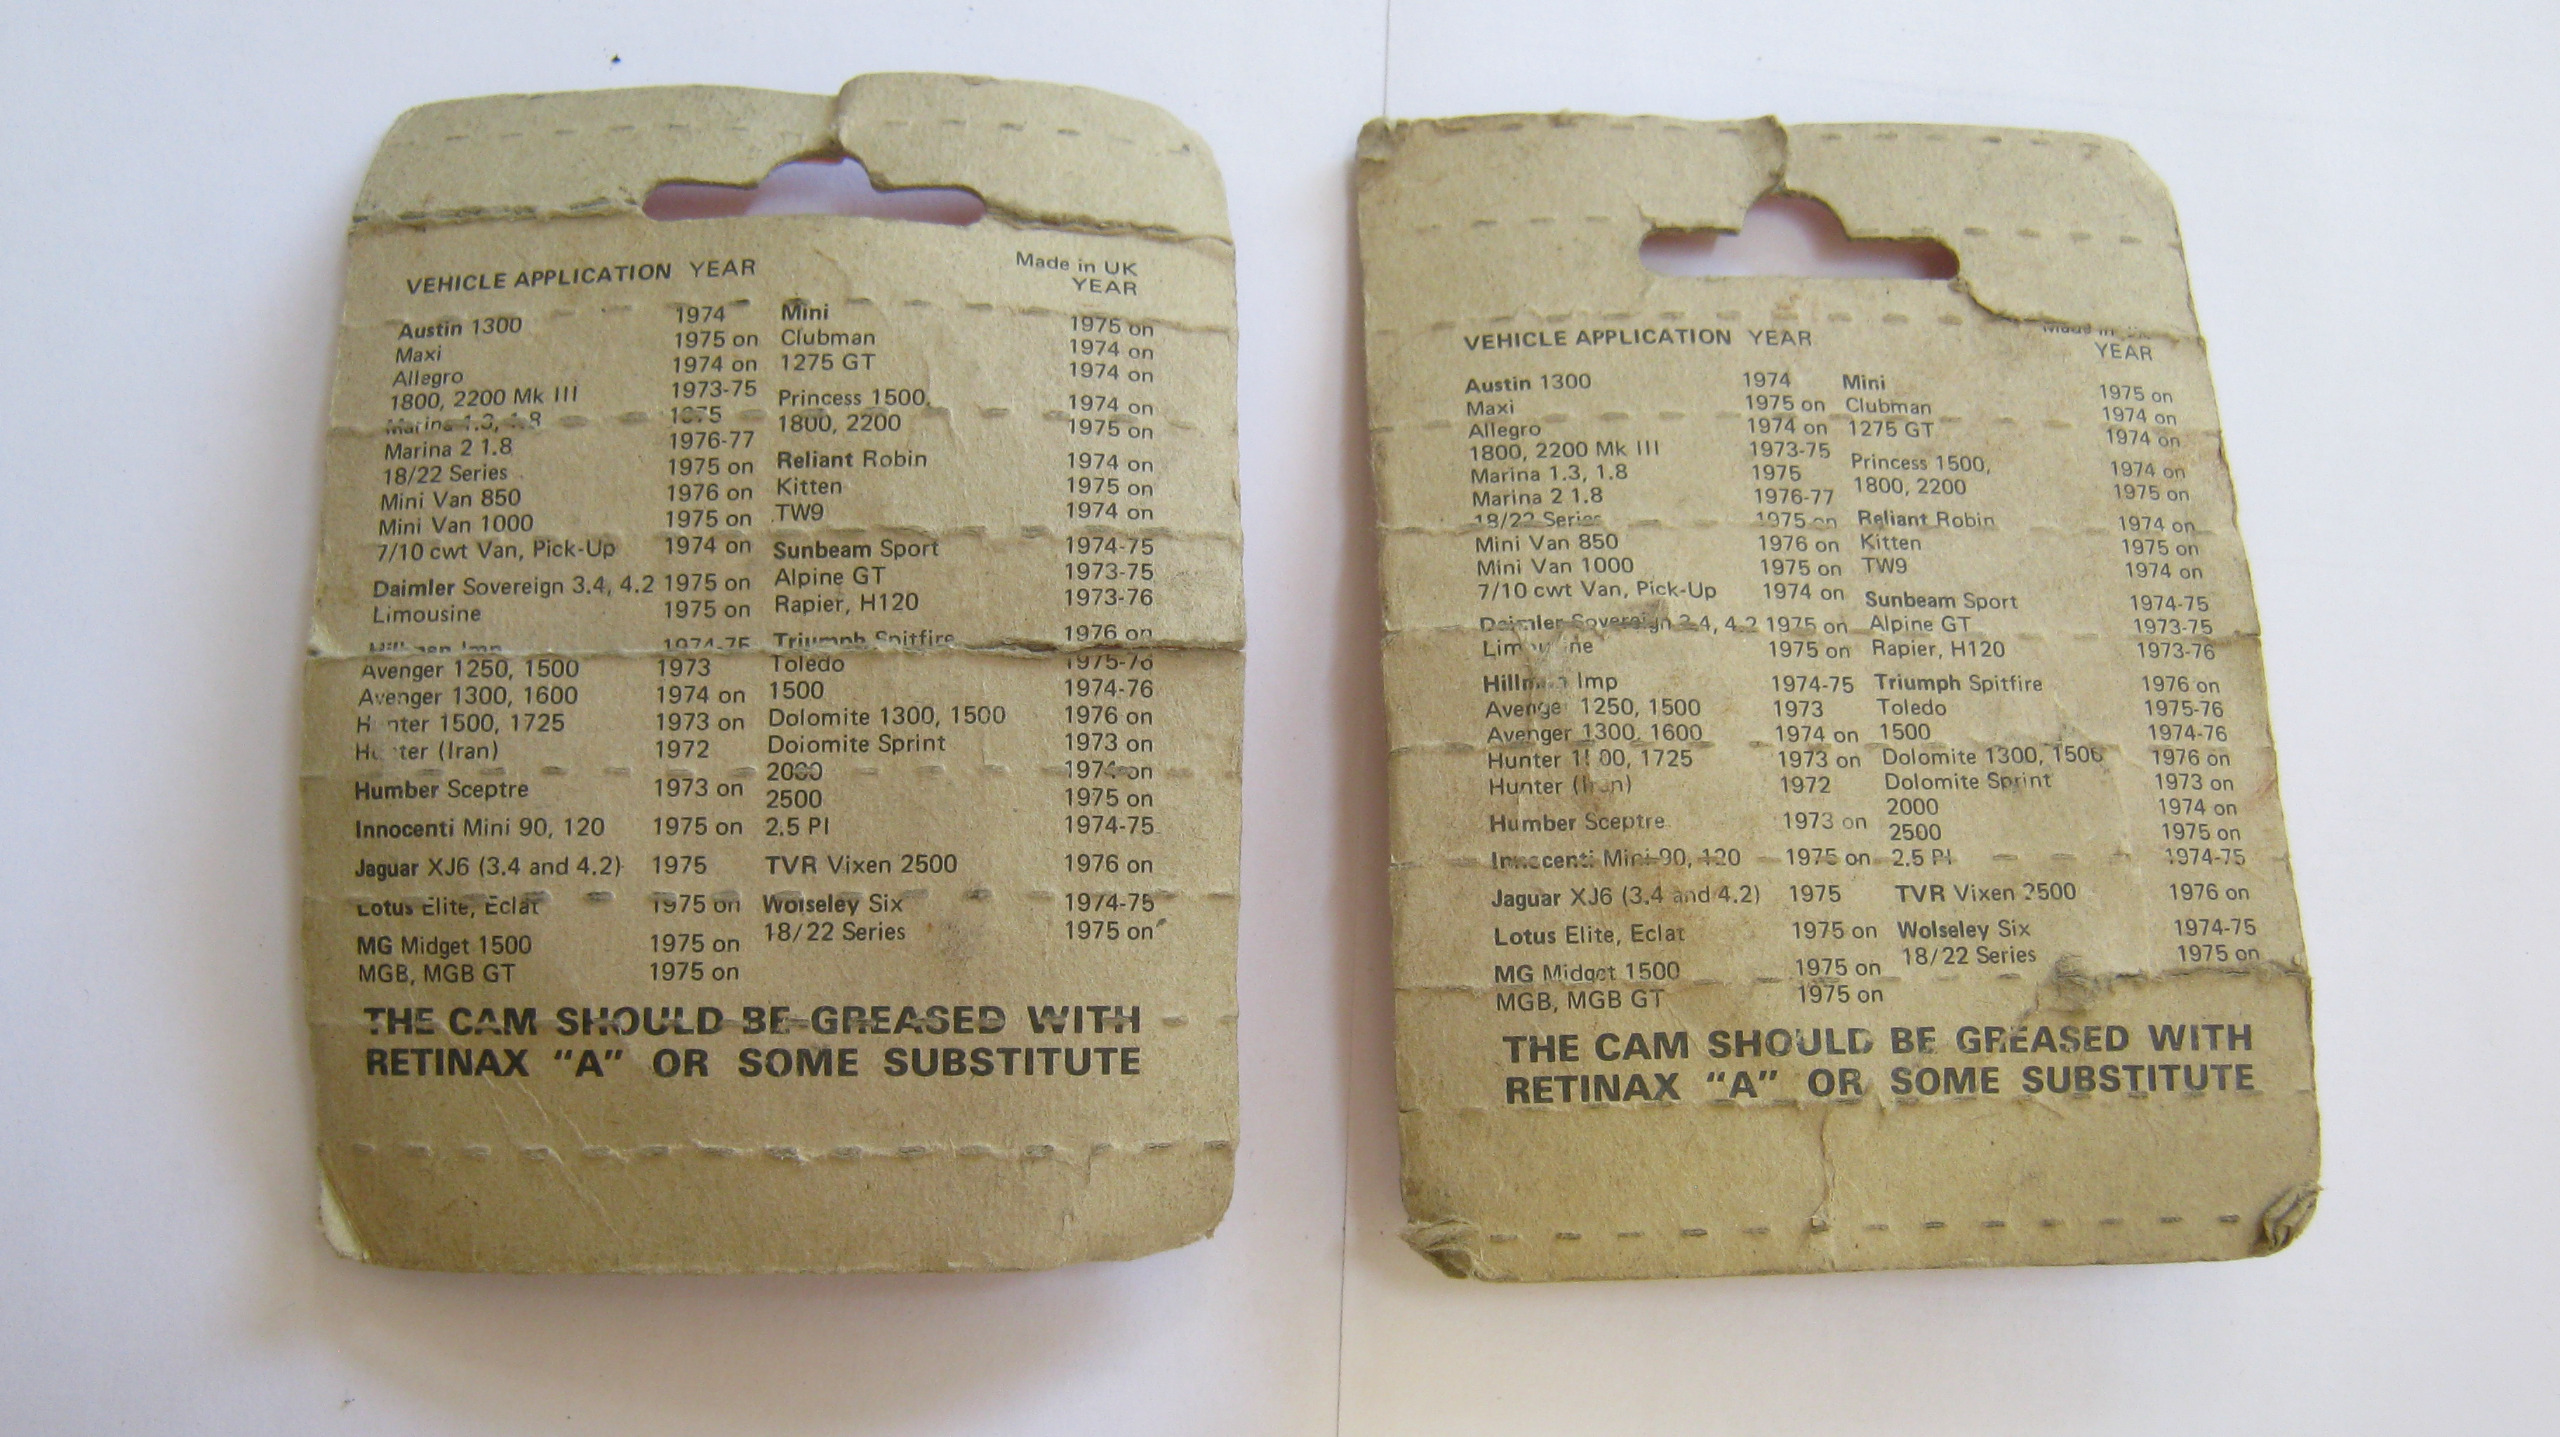 VEHICLE APPLICATION YEAR
Made in UK
YEAR
Austin 1300 1974
Maxi 1975 on
Allegro 1974 on
1800, 2200 Mk III 1973-75
Marina 1.3, 1.8 1975
Marina 2 1.8 1976-77
18/22 Series 1975 on
Mini Van 850 1976 on
Mini Van 1000 1975 on
7/10 cwt Van, Pick-Up 1974 on
Daimler Sovereign 3.4, 4.2 1975 on
Limousine 1975 on
Hillman Imp 1974-75
Avenger 1250, 1500 1973
Avenger 1300, 1600 1974 on
Hunter 1500, 1725 1973 on
Hunter (Iran) 1972
Humber Sceptre 1973 on
Innocenti Mini 90, 120 1975 on
Jaguar XJ6 (3.4 and 4.2) 1975
Lotus Elite, Eclat 1975 on
MG Midget 1500 1975 on
MGB, MGB GT 1975 on
Mini 1975 on
Clubman 1974 on
1275 GT 1974 on
Princess 1500, 1974 on
1800, 2200 1975 on
Reliant Robin 1974 on
Kitten 1975 on
TW9 1974 on
Sunbeam Sport 1974-75
Alpine GT 1973-75
Rapier, H120 1973-76
Triumph Spitfire 1976 on
Toledo 1975-76
1500 1974-76
Dolomite 1300, 1500 1976 on
Dolomite Sprint 1973 on
2000 1974 on
2500 1975 on
2.5 PI 1974-75
TVR Vixen 2500 1976 on
Wolseley Six 1974-75
18/22 Series 1975 on
THE CAM SHOULD BE GREASED WITH
RETINAX "A" OR SOME SUBSTITUTE
VEHICLE APPLICATION YEAR
Made in UK
YEAR
Austin 1300 1974
Maxi 1975 on
Allegro 1974 on
1800, 2200 Mk III 1973-75
Marina 1.3, 1.8 1975
Marina 2 1.8 1976-77
18/22 Series 1975 on
Mini Van 850 1976 on
Mini Van 1000 1975 on
7/10 cwt Van, Pick-Up 1974 on
Daimler Sovereign 3.4, 4.2 1975 on
Limousine 1975 on
Hillman Imp 1974-75
Avenger 1250, 1500 1973
Avenger 1300, 1600 1974 on
Hunter 1500, 1725 1973 on
Hunter (Iran) 1972
Humber Sceptre 1973 on
Innocenti Mini 90, 120 1975 on
Jaguar XJ6 (3.4 and 4.2) 1975
Lotus Elite, Eclat 1975 on
MG Midget 1500 1975 on
MGB, MGB GT 1975 on
Mini 1975 on
Clubman 1974 on
1275 GT 1974 on
Princess 1500, 1974 on
1800, 2200 1975 on
Reliant Robin 1974 on
Kitten 1975 on
TW9 1974 on
Sunbeam Sport 1974-75
Alpine GT 1973-75
Rapier, H120 1973-76
Triumph Spitfire 1976 on
Toledo 1975-76
1500 1974-76
Dolomite 1300, 1500 1976 on
Dolomite Sprint 1973 on
2000 1974 on
2500 1975 on
2.5 PI 1974-75
TVR Vixen 2500 1976 on
Wolseley Six 1974-75
18/22 Series 1975 on
THE CAM SHOULD BE GREASED WITH
RETINAX "A" OR SOME SUBSTITUTE